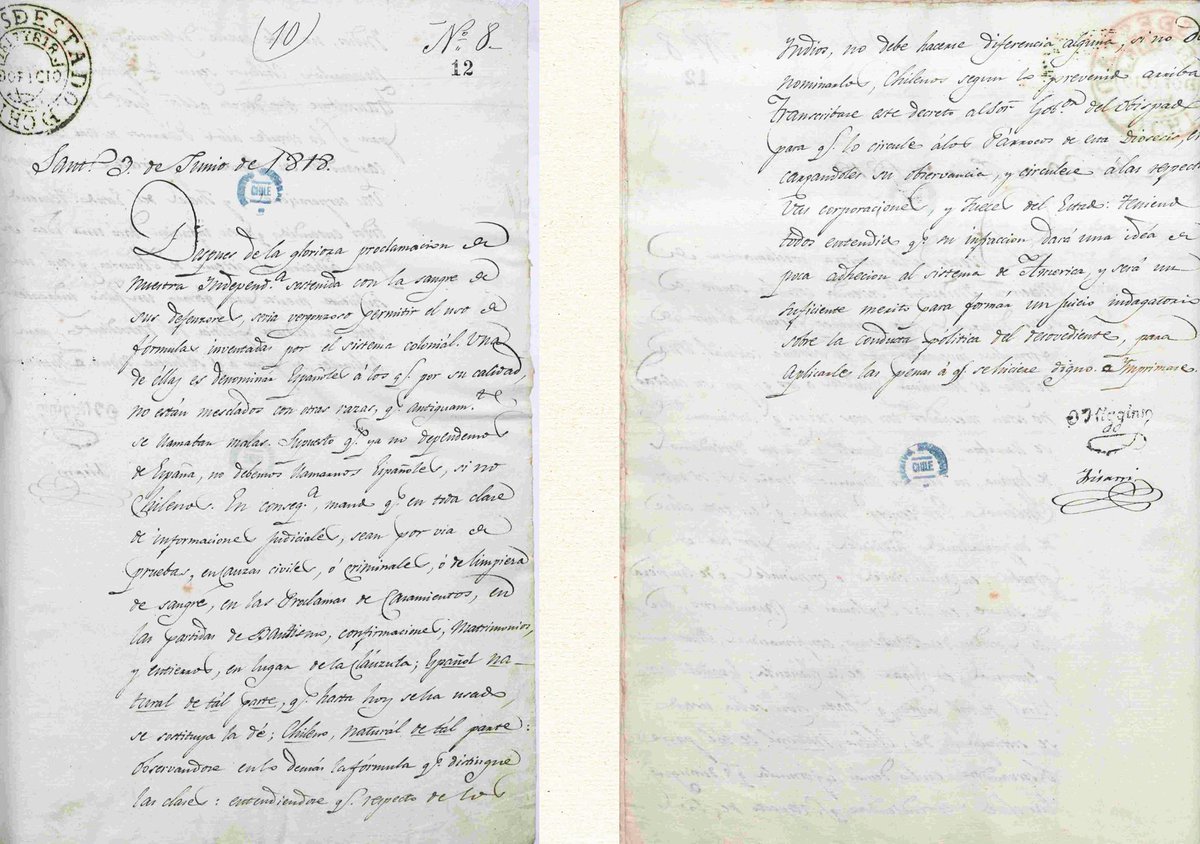 (10)
Nº 8.
12
CHILE
Santº 3. de Junio de 1818.
Despues de la glorioza proclamacion de
nuestra Independ.ª sostenida con la sangre de
sus defenzores, seria vergonzoso permitir el uso de
fórmulas inventadas por el sistema colonial. Una
de éllas es denominar Españoles á los q.e por su calidad,
no están mesclados con otras razas, q.e antiguam.te
se llamaban malas. Supuesto q.e ya no dependemos
de España, no debemos llamarnos Españoles, si no
Chilenos. En conseq.ª, mando q.e en toda clase
de informaciones judiciales, sean por via de
pruebas, en cauzas civiles, ó criminales, ó de limpieza
de sangre, en las Proclamas de Casamientos, en
las partidas de Bautismo, confirmaciones, Matrimonios,
y entierros, en lugar de la Clauzula; Español na-
tural de tál parte, q.e hasta hoy se ha usado,
se sostituya la dé; Chileno, naturál de tal parte:
observandose en lo demás la fórmula q.e distingue
las clases: entendiendose q.e respecto de los
Indios, no debe hacerse diferencia alguna, si no de
nominarlos, Chilenos segun lo prevenido arriba
Transcribase este decreto al Sor. Gob.or del Obispad
para q.e lo circule á los Párrocos de esta Diosecis, en
cargandoles su observancia, y circulese á las respect
vas corporaciones, y Jueces del Estado: Teniend
todos entendido q.e su infraccion dará una idéa de
poca adhecion al sistema de América, y será un
suficiente merito para formár un juicio indagatorio
sobre la conducta política del desovediente, para
aplicarle las penas á q.e se hiciere digno. Imprimase
O'Higgins
CHILE
Irisarri